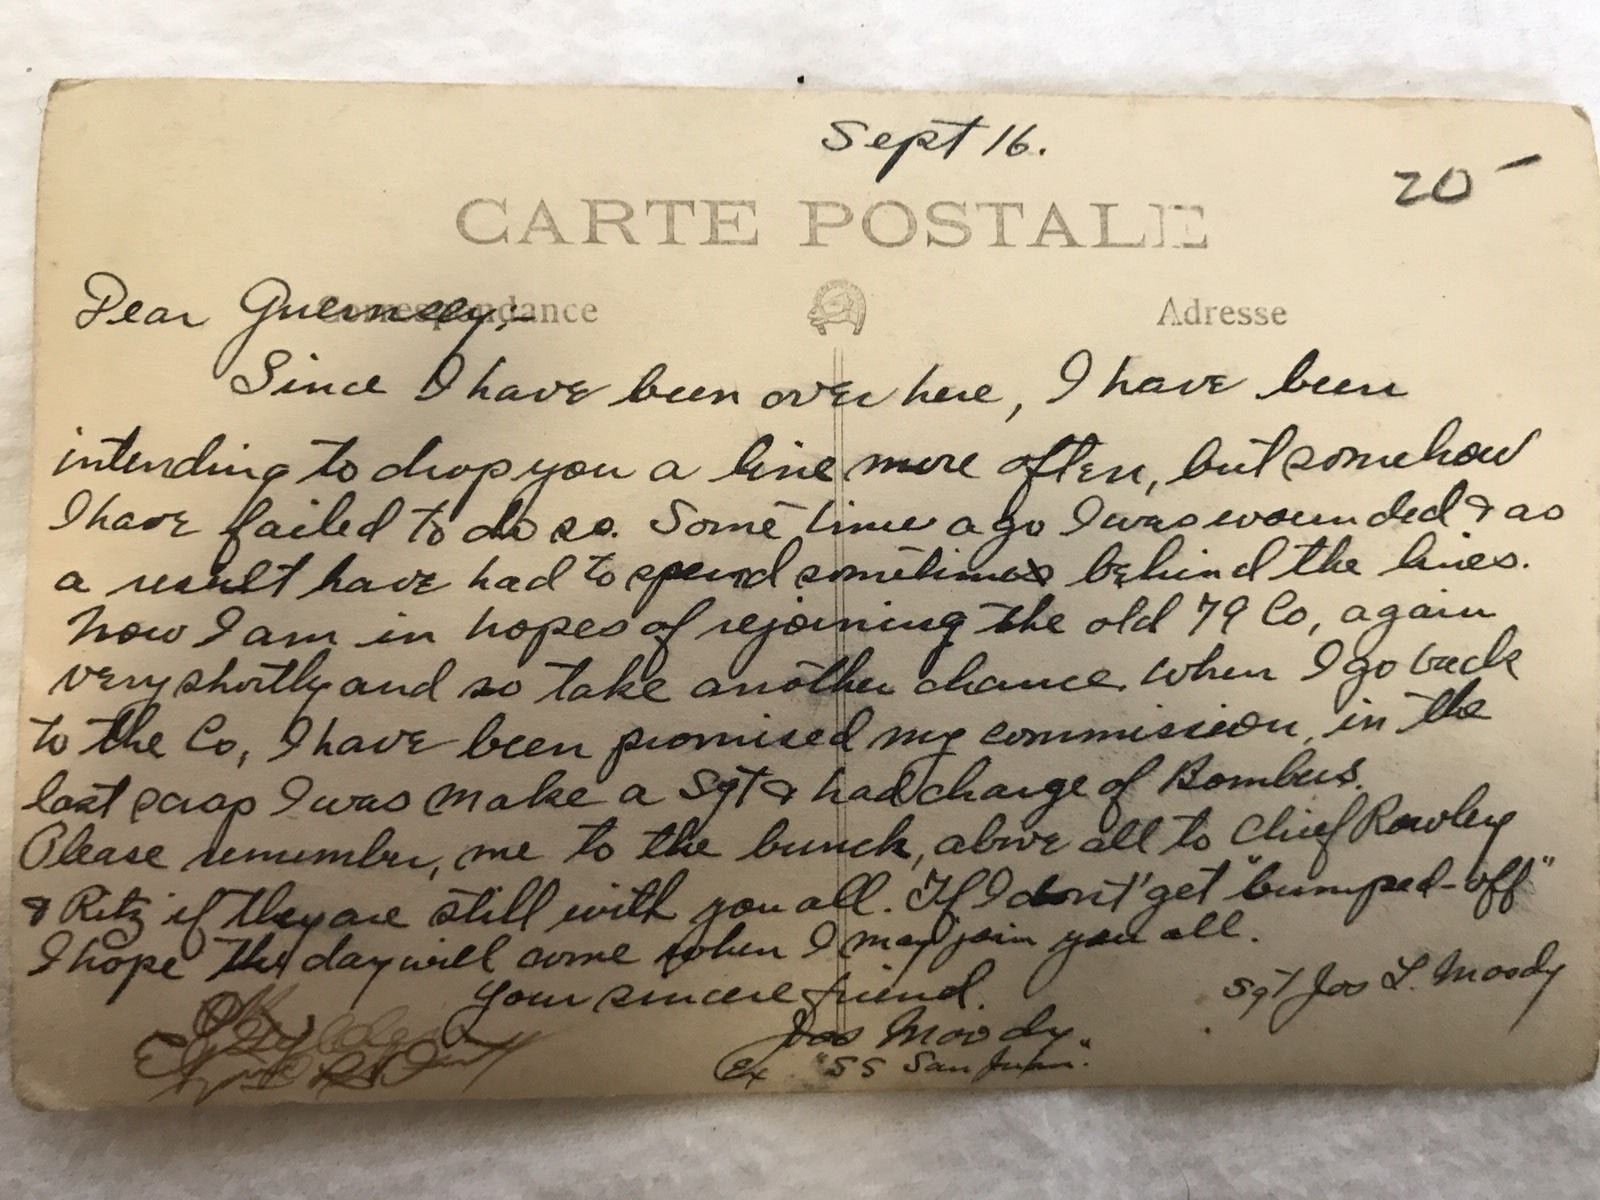 Sept 16.
20-
CARTE POSTALE
Correspondance
Adresse
Dear Guernsey;-
Since I have been over here, I have been
intending to drop you a line more often, but somehow
I have failed to do so. Some time ago I was wounded & as
a result have had to spend sometimes behind the lines.
Now I am in hopes of rejoining the old 79 Co, again
very shortly and so take another chance. When I go back
to the Co, I have been promised my commission, in the
last scrap I was make a Sgt & had charge of Bombers.
Please remember, me to the bunch, above all to Chief Rowley
& Ritz if they are still with you all. If I don't get "bumped-off"
I hope the day will come when I may join you all.
Your sincere friend.
Sgt Jos L. Moody
Jos Moody.
Ex "SS San Juan."